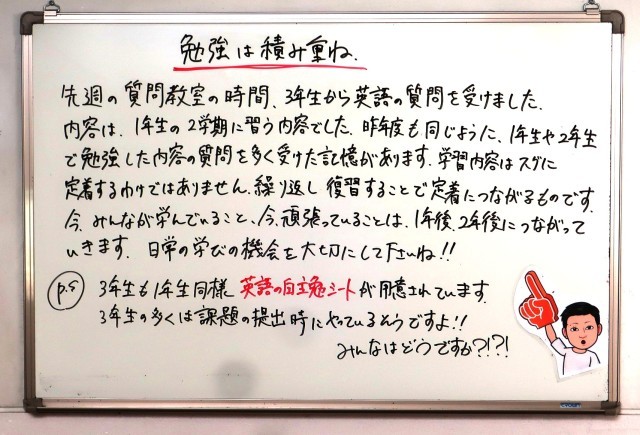 勉強は積み重ね.
先週の質問教室の時間、3年生から英語の質問を受けました.
内容は、1年生の2学期に習う内容でした.昨年度も同じように、1年生や2年生
で勉強した内容の質問を多く受けた記憶があります.学習内容はスグに
定着するわけではありません.繰り返し復習することで定着につながるものです.
今、みんなが学んでいること、今、頑張っていることは、1年後、2年後につながって
いきます. 日常の学びの機会を大切にして下さいね!!
P.S 3年生も1年生同様、英語の自主勉シートが用意されています.
3年生の多くは課題の提出時にやっているそうですよ!!
みんなはどうですか?!?!